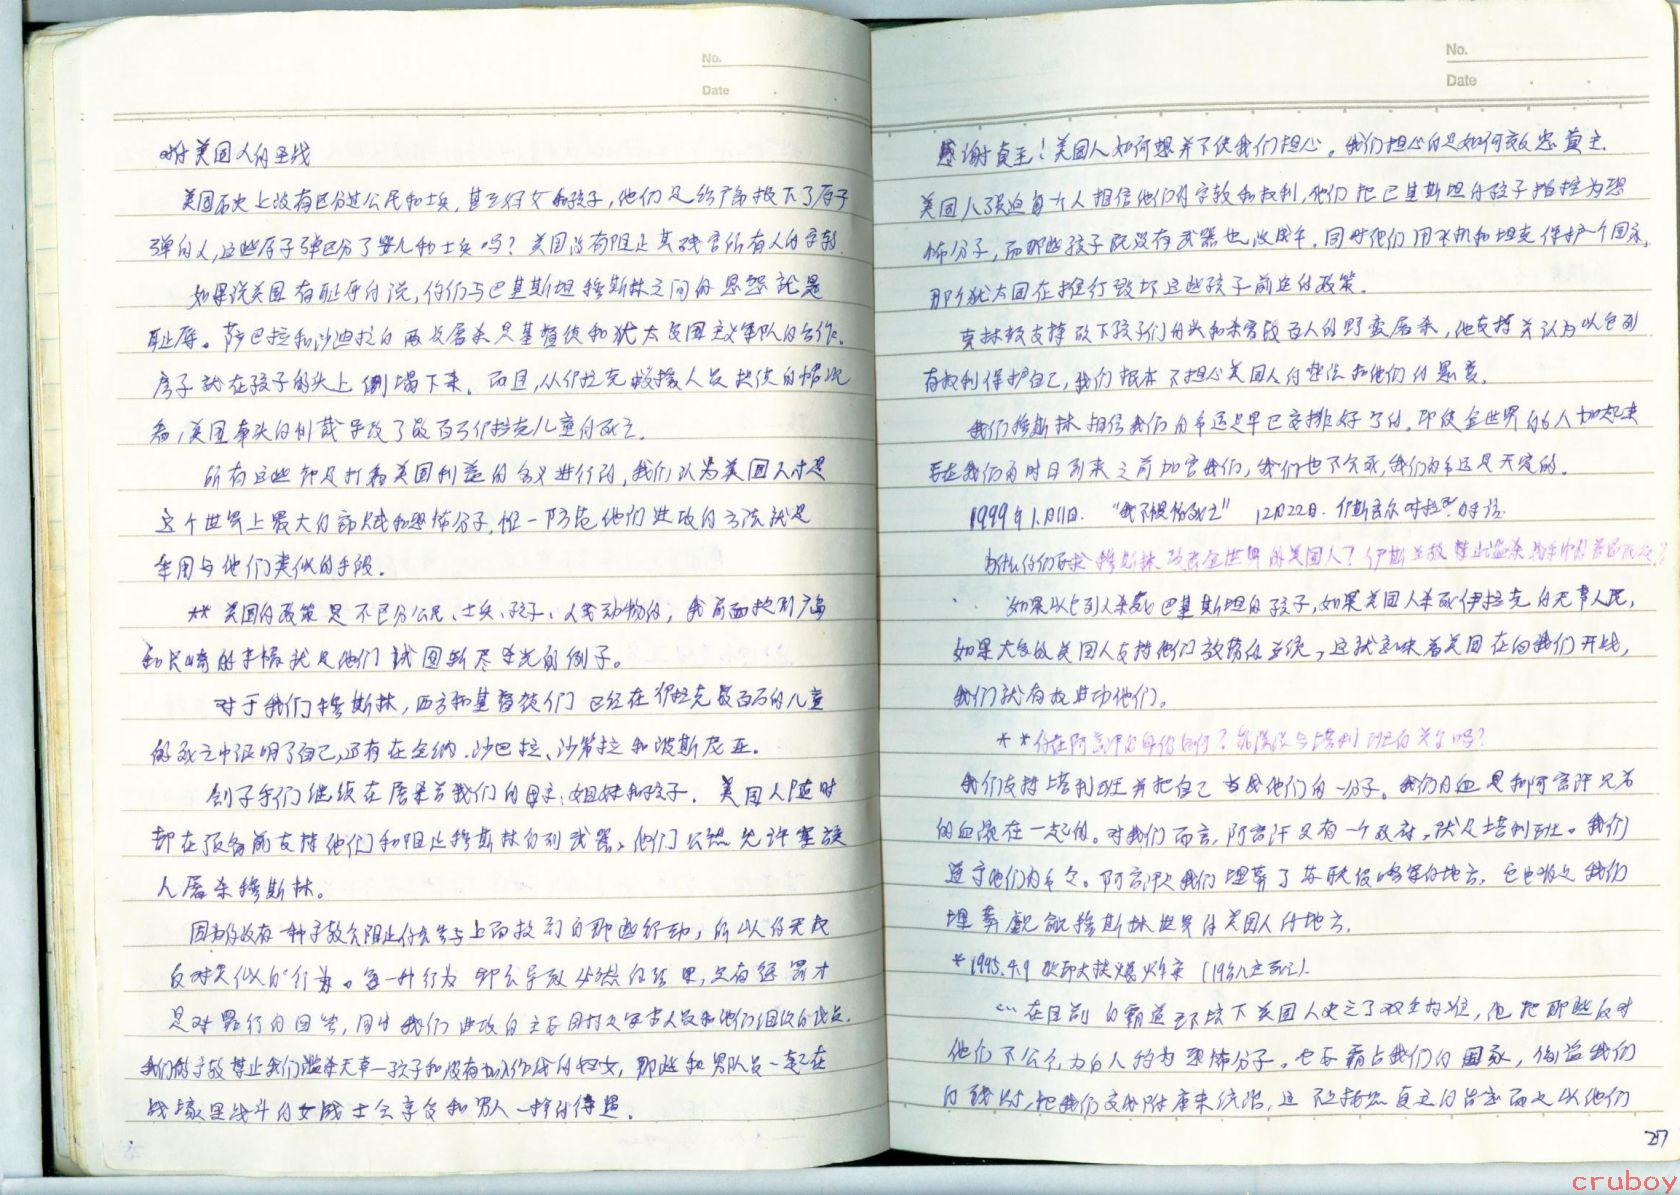 No.
Date
对付美国人的圣战
美国历史上没有区分过公民和士兵，甚至妇女和孩子，他们是给广岛投下了原子
弹的人，这些原子弹区分了婴儿和士兵吗？美国没有阻止其残害所有人的宗教.
如果说美国有耻辱的说，你们与巴基斯坦穆斯林之间的恩怨就是
耻辱。萨巴拉和沙迪拉的两次屠杀是基督徒和犹太复国主义军队的合作.
房子就在孩子的头上倒塌下来。而且，从伊拉克救援人员提供的情况
看，美国牵头的制裁导致了数百万伊拉克儿童的死亡.
所有这些都是打着美国利益的名义进行的，我们认为美国人才是
这个世界上最大的 和恐怖分子，惟一防范他们进攻的方法就是
采用与他们类似的手段.
** 美国的政策是不区分公民、士兵、孩子、人或动物的，我前面提到广岛
和长崎的幸福就是他们试图斩尽杀光的例子。
对于我们穆斯林，西方和基督徒们已经在伊拉克数百万的儿童
的死亡中证明了自己，还有在全纳.沙巴拉、沙第拉和波斯尼亚.
刽子手们继续在屠杀着我们的母亲、姐妹和孩子. 美国人随时
都在准备前支持他们和阻止穆斯林得到武器，他们公然允许塞族
人屠杀穆斯林。
因为你没有一种宗教会阻止你去参与上面提到的那些行动，所以你无权
反对类似的行为。每一种行为都会导致必然的结果，只有惩罚才
是对罪行的回答，同时我们进攻的主要目标是军事人员和他们组织的成员.
我们的宗教禁止我们滥杀无辜—孩子和没有加入作战的妇女，那些和男队员一起在
战壕里战斗的女战士会享受和男人一样的待遇.
No.
Date
感谢真主！美国人如何想并不使我们担心。我们担心的是如何效忠真主.
美国人强迫每个人相信他们的宗教和权利，他们把巴基斯坦的孩子指控为恐
怖分子，而那些孩子既没有武器也没成年. 同时他们用飞机和坦克保护一个国家，
那个犹太国在推行毁坏这些孩子前途的政策.
克林顿支持砍下孩子们的头和杀害数百人的野蛮屠杀，他支持并认为以色列
有权利保护自己，我们根本不担心美国人的想法和他们的愚蠢.
我们穆斯林相信我们的命运是早已安排好了的. 即使全世界的人加起来
要在我们的时日到来之前加害我们，我们也不会死，我们的命运是天定的.
1999年1月11日. “我不惧怕死亡” 12月22日.
为什么你们要求穆斯林攻击全世界的美国人？伊斯兰教禁止滥杀
如果以色列人杀死巴基斯坦的孩子，如果美国人杀死伊拉克的无辜人民，
如果大多数美国人支持他们放荡的总统，这就意味着美国在向我们开战，
我们就有权进攻他们.
**你在阿富汗的身份如何？能谈谈与塔利班的关系吗？
我们支持塔利班并把自己当成他们的一分子。我们的血是和阿富汗兄弟
的血凝在一起的。对我们而言，阿富汗只有一个政府，就是塔利班。我们
遵守他们的命令。阿富汗是我们埋葬了苏联侵略军的地方，它也将是我们
埋葬觊觎穆斯林世界的美国人的地方.
…在目前的霸道环境下美国人定立了双重标准，他把那些反对
他们不公行为的人称为恐怖分子。也要霸占我们的国家，偷盗我们
的钱财，把我们变成附庸来统治，这不是按照真主的旨意而是以他们
27
cruboy